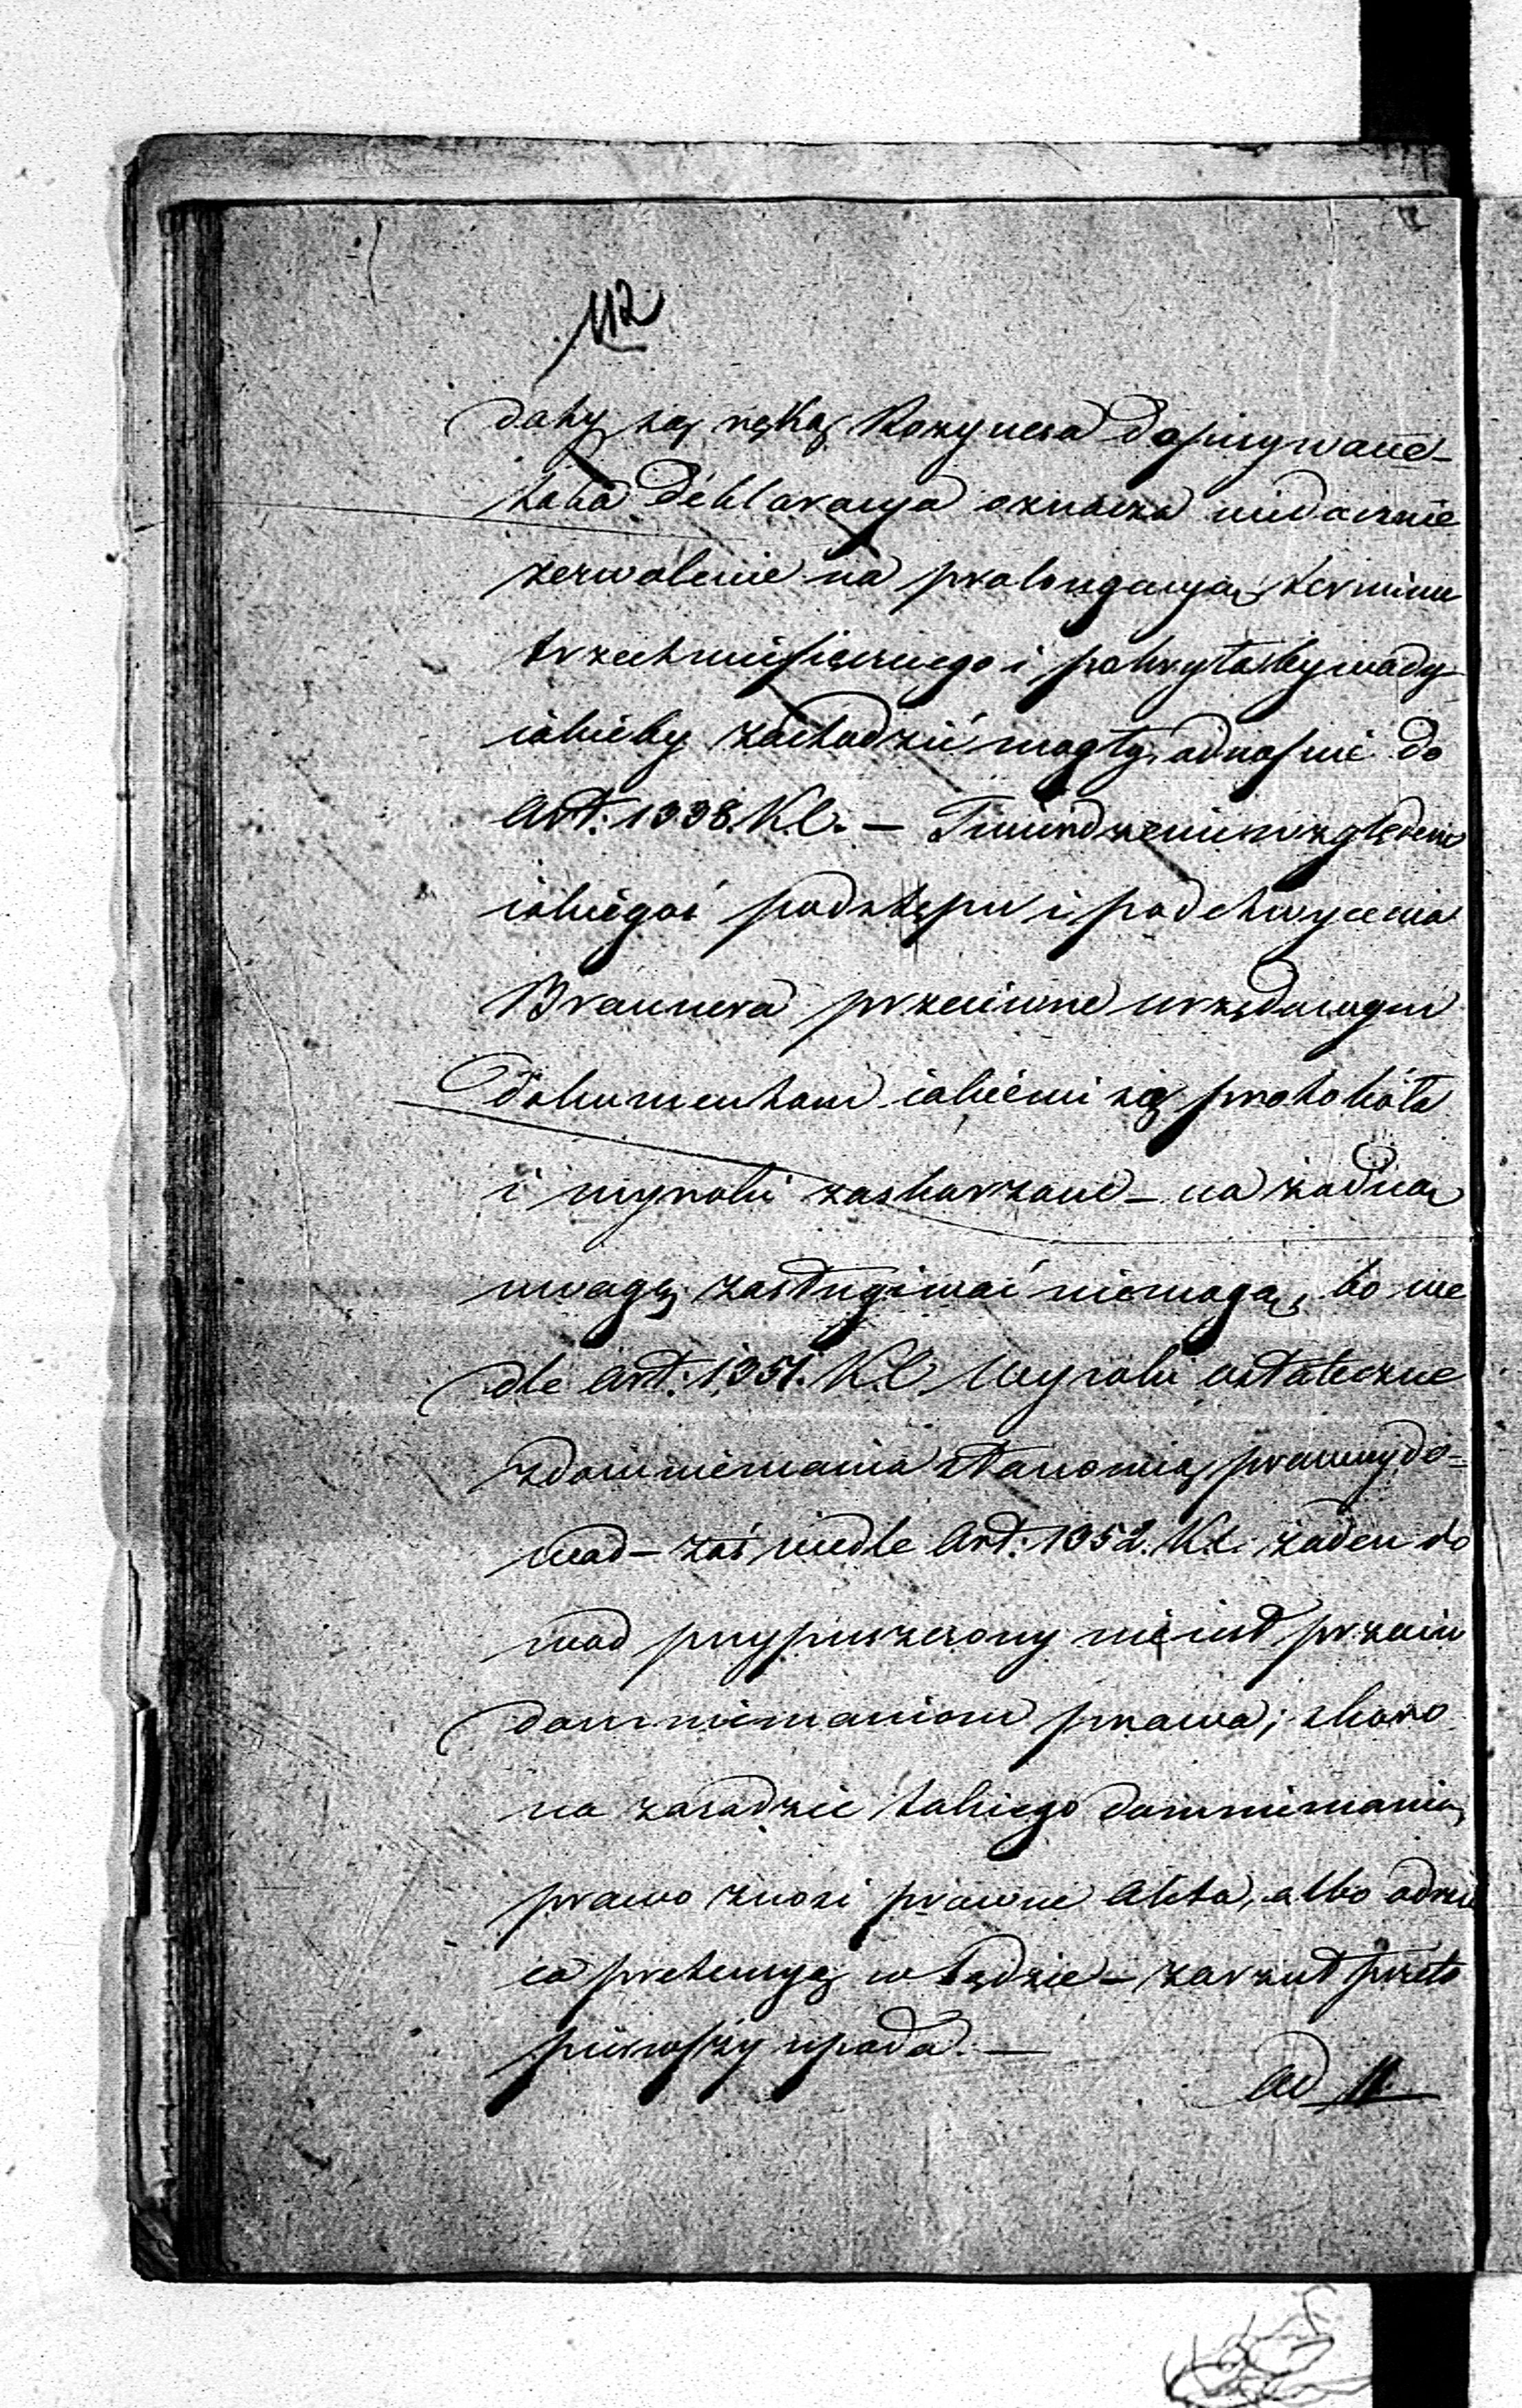 112
daty są ręką Rozynera dopisywane –
taka deklaracya oznacza widocznie
zezwolenie na prolongacyą terminu
trzechmiesięcznego i pokrytaby wady
iakieby zachodzić mogły, odnośnie do
Art: 1338. K.C. – Twierdzenie względem
iakiegoś podstępu i podchwycenia
Braunera przeciwne urzędowym
dokumentom iakiemi są protokóła
i wyroki zaskarzane – na żadną
uwagę zasługiwać niemogą, bo we
dle Art: 1351. K.C. Wyroki ostateczne
z domniemania stanowią prawny do=
wod – zaś wedle Art: 1352. K.C. żaden do
wod przypuszczony nie iest przeciw
domniemaniom prawa; skoro
na zasadzie takiego domniemania,
prawo znosi prawne Akta, albo odrzu
ca pretensyą w Sądzie – zarzut przeto
pierwszy upada. –
ad II